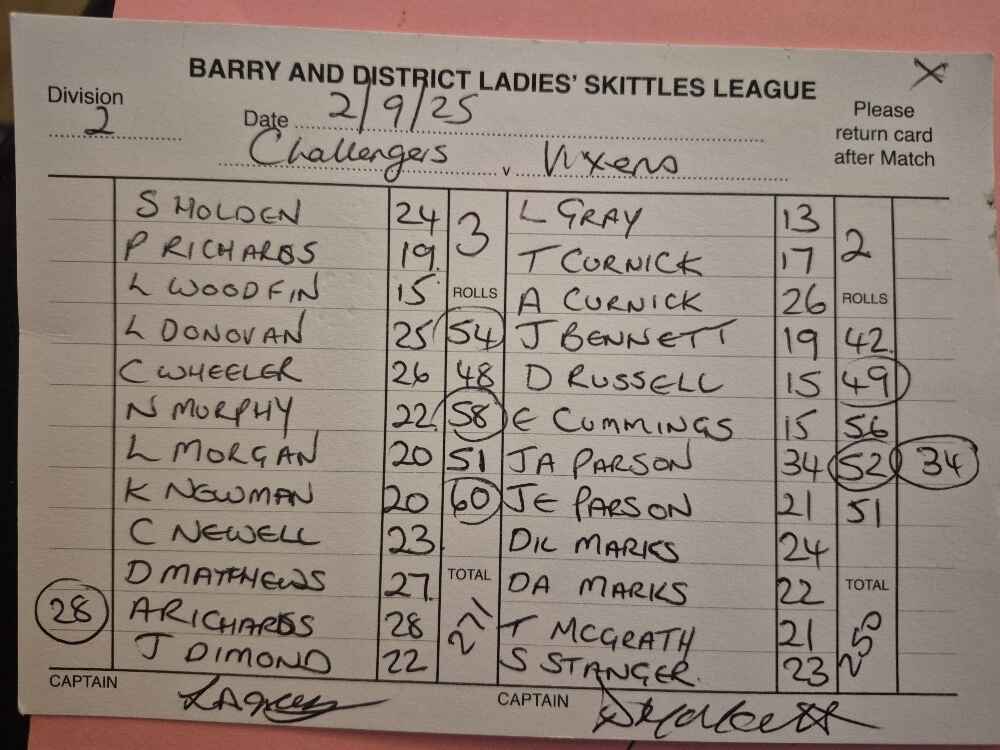 BARRY AND DISTRICT LADIES' SKITTLES LEAGUE
X
Division 2
Date 2/9/25
Please return card after Match
Challengers v Vixens
S HOLDEN 24 3 L GRAY 13 2
P RICHARDS 19 T CURNICK 17
L WOODFIN 15 ROLLS A CURNICK 26 ROLLS
L DONOVAN 25 54 J BENNETT 19 42
C WHEELER 26 48 D RUSSELL 15 49
N MURPHY 22 58 E CUMMINGS 15 56
L MORGAN 20 51 JA PARSON 34 52 34
K NEWMAN 20 60 JE PARSON 21 51
C NEWELL 23 DIL MARKS 24
D MATTHEWS 27 TOTAL DA MARKS 22 TOTAL
28 A RICHARDS 28 271 T MCGRATH 21 250
J DIMOND 22 S STANGER 23
CAPTAIN CAPTAIN